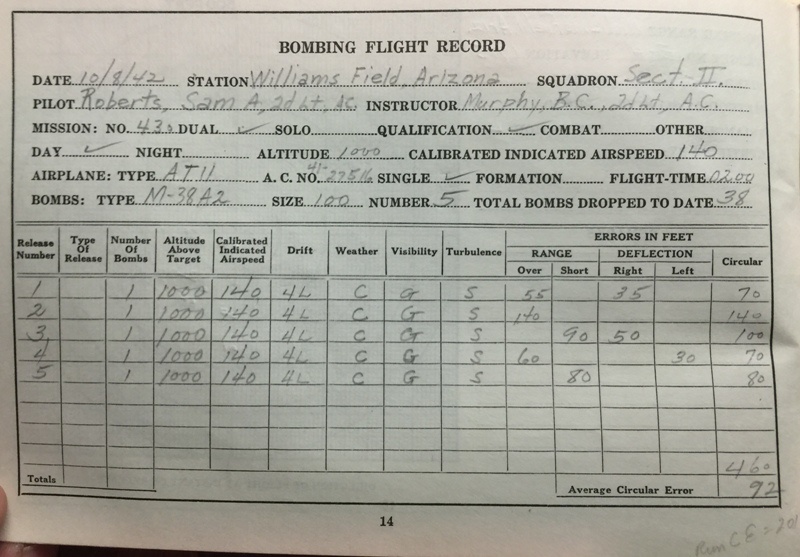 BOMBING FLIGHT RECORD
DATE 10/8/42 STATION Williams Field, Arizona SQUADRON Sect. II.
PILOT Roberts, Sam A, 2d Lt, AC. INSTRUCTOR Murphy, B.C., 2d Lt, A.C.
MISSION: NO. 43 DUAL ✓ SOLO QUALIFICATION ✓ COMBAT OTHER
DAY ✓ NIGHT ALTITUDE 1000 CALIBRATED INDICATED AIRSPEED 140
AIRPLANE: TYPE AT11 A. C. NO. 41-27516 SINGLE ✓ FORMATION FLIGHT-TIME 02:00
BOMBS: TYPE M-38A2 SIZE 100 NUMBER 5 TOTAL BOMBS DROPPED TO DATE 38
Release Number Type Of Release Number Of Bombs Altitude Above Target Calibrated Indicated Airspeed Drift Weather Visibility Turbulence ERRORS IN FEET
RANGE DEFLECTION Circular
Over Short Right Left
1 1 1000 140 4L C G S 55 35 70
2 1 1000 140 4L C G S 140 140
3 1 1000 140 4L C G S 90 50 100
4 1 1000 140 4L C G S 60 30 70
5 1 1000 140 4L C G S 80 80
460
Totals Average Circular Error 92
14
Run CE = 201